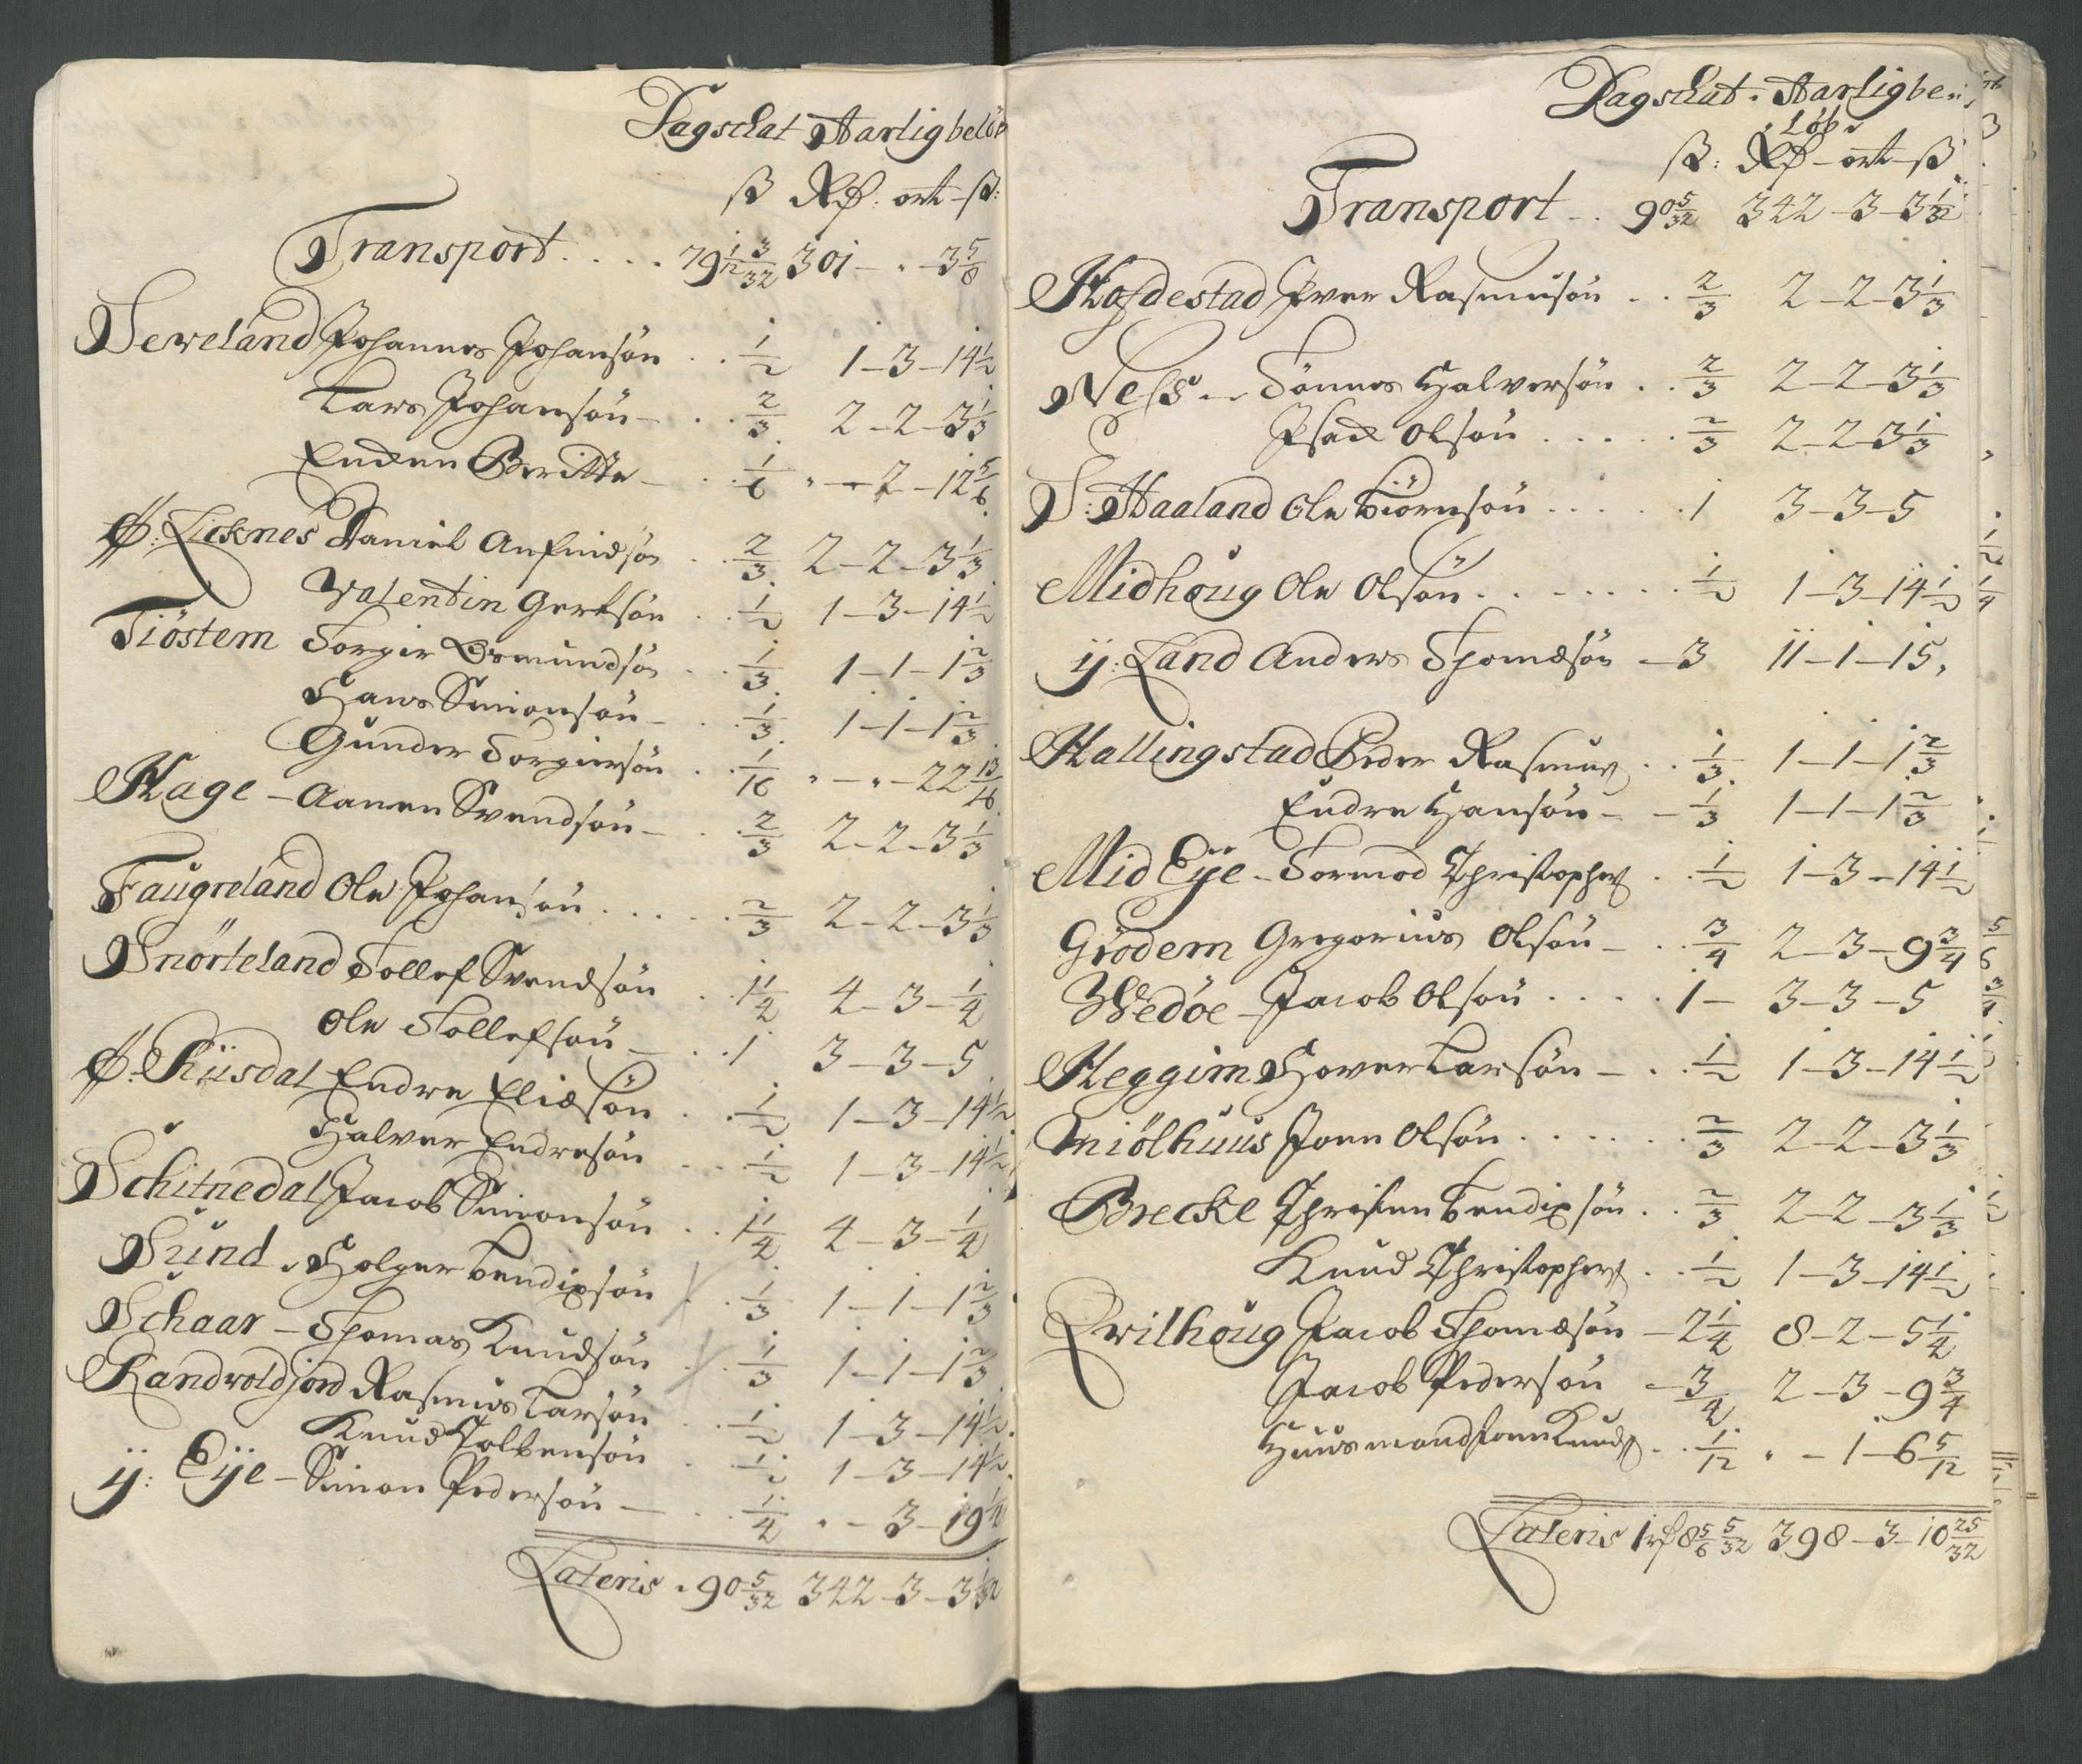 Dagschat Aarlig beløb
ß Rd: ort - ß:
Transport . . . . 79 1/12 3/32 301 - " - 3 5/8
Seweland Johannes Johansøn . . 1/2 1 - 3 - 14 1/2
Lars Johansøn - . . 2/3 2 - 2 - 3 1/3
Encken Beritte - . . 1/6 " - 2 - 12 5/6
Licknes Daniel Anfindsøn . . 2/3 2 - 2 - 3 1/3
Valentin Gertsøn . . 1/2 1 - 3 - 14 1/2
Tiöstem Torgier Osmundsøn . . 1/3 1 - 1 - 1 2/3
Hans Simonsøn - . . 1/3 1 - 1 - 1 2/3
Gunder Torgiersøn . . 1/16 " - " - 22 13/16
Hage - Aanen Svendsøn - . . 2/3 2 - 2 - 3 1/3
Faugreland Ole Johansøn . . . . . 2/3 2 - 2 - 3 1/3
Snörteland Tollef Svendsøn . . 1 1/4 4 - 3 - 1/4
Ole Tollefsøn - . . 1 3 - 3 - 5
Riisdal Endre Eliæsøn . . 1/2 1 - 3 - 14 1/2
Halver Endresøn . . 1/2 1 - 3 - 14 1/2
Schitnedal Jacob Simonsøn . . 1 1/4 4 - 3 - 1/4
Sund - Holger Bendixsøn . . 1/3 1 - 1 - 1 2/3
Schaar - Thomas Knudsøn . . 1/3 1 - 1 - 1 2/3
Randvoldjord Rasmus Larsøn . . 1/2 1 - 3 - 14 1/2
Knud Tolbensøn . . 1/2 1 - 3 - 14 1/2
ÿ: Eÿe - Simon Pedersøn - . . 1/4 " - 3 - 19 1/4
Lateris . 90 5/32 342 - 3 - 3 1/32
Dagschat . Aarlig be
Løb
ß: Rd - ort - ß
Transport - . 90 5/32 342 - 3 - 3 1/32
Hofdestad Iver Rasmusøn . . 2/3 2 - 2 - 3 1/3
Ness - Tønnes Halversøn . . 2/3 2 - 2 - 3 1/3
Isack Olsøn . . . . . 2/3 2 - 2 - 3 1/3
S: Haaland Ole Biörnsøn . . . . . 1 3 - 3 - 5
Midhoug Ole Olsøn . . . . . . . 1/2 1 - 3 - 14 1/2
ÿ: Land Anders Thomæsøn - 3 11 - 1 - 15
Hallingstad Peder Rasmus . . 1/3 1 - 1 - 1 2/3
Endre Hansøn - - 1/3 1 - 1 - 1 2/3
Mid Eÿe - Tormod Christophers . . 1/2 1 - 3 - 14 1/2
Grödem Gregorius Olsøn - . . 3/4 2 - 3 - 9 3/4
Wedöe - Jacob Olsøn . . . . 1 - 3 - 3 - 5
Heggim Hover Larsøn - . . 1/2 1 - 3 - 14 1/2
miölhuus Joen Olsøn . . . . . . 2/3 2 - 2 - 3 1/3
Brecke Christen Bendixsøn . . 2/3 2 - 2 - 3 1/3
Knud Christophers . . 1/2 1 - 3 - 14 1/2
Qvilhoug Jacob Thomæsøn - 2 1/4 8 - 2 - 5 1/4
Jacob Pedersøn - 3/4 2 - 3 - 9 3/4
Huusmand Joen Knuds . . 1/12 " - 1 - 6 5/12
Lateris 1 rd 8 5/6 5/32 398 - 3 - 10 25/32